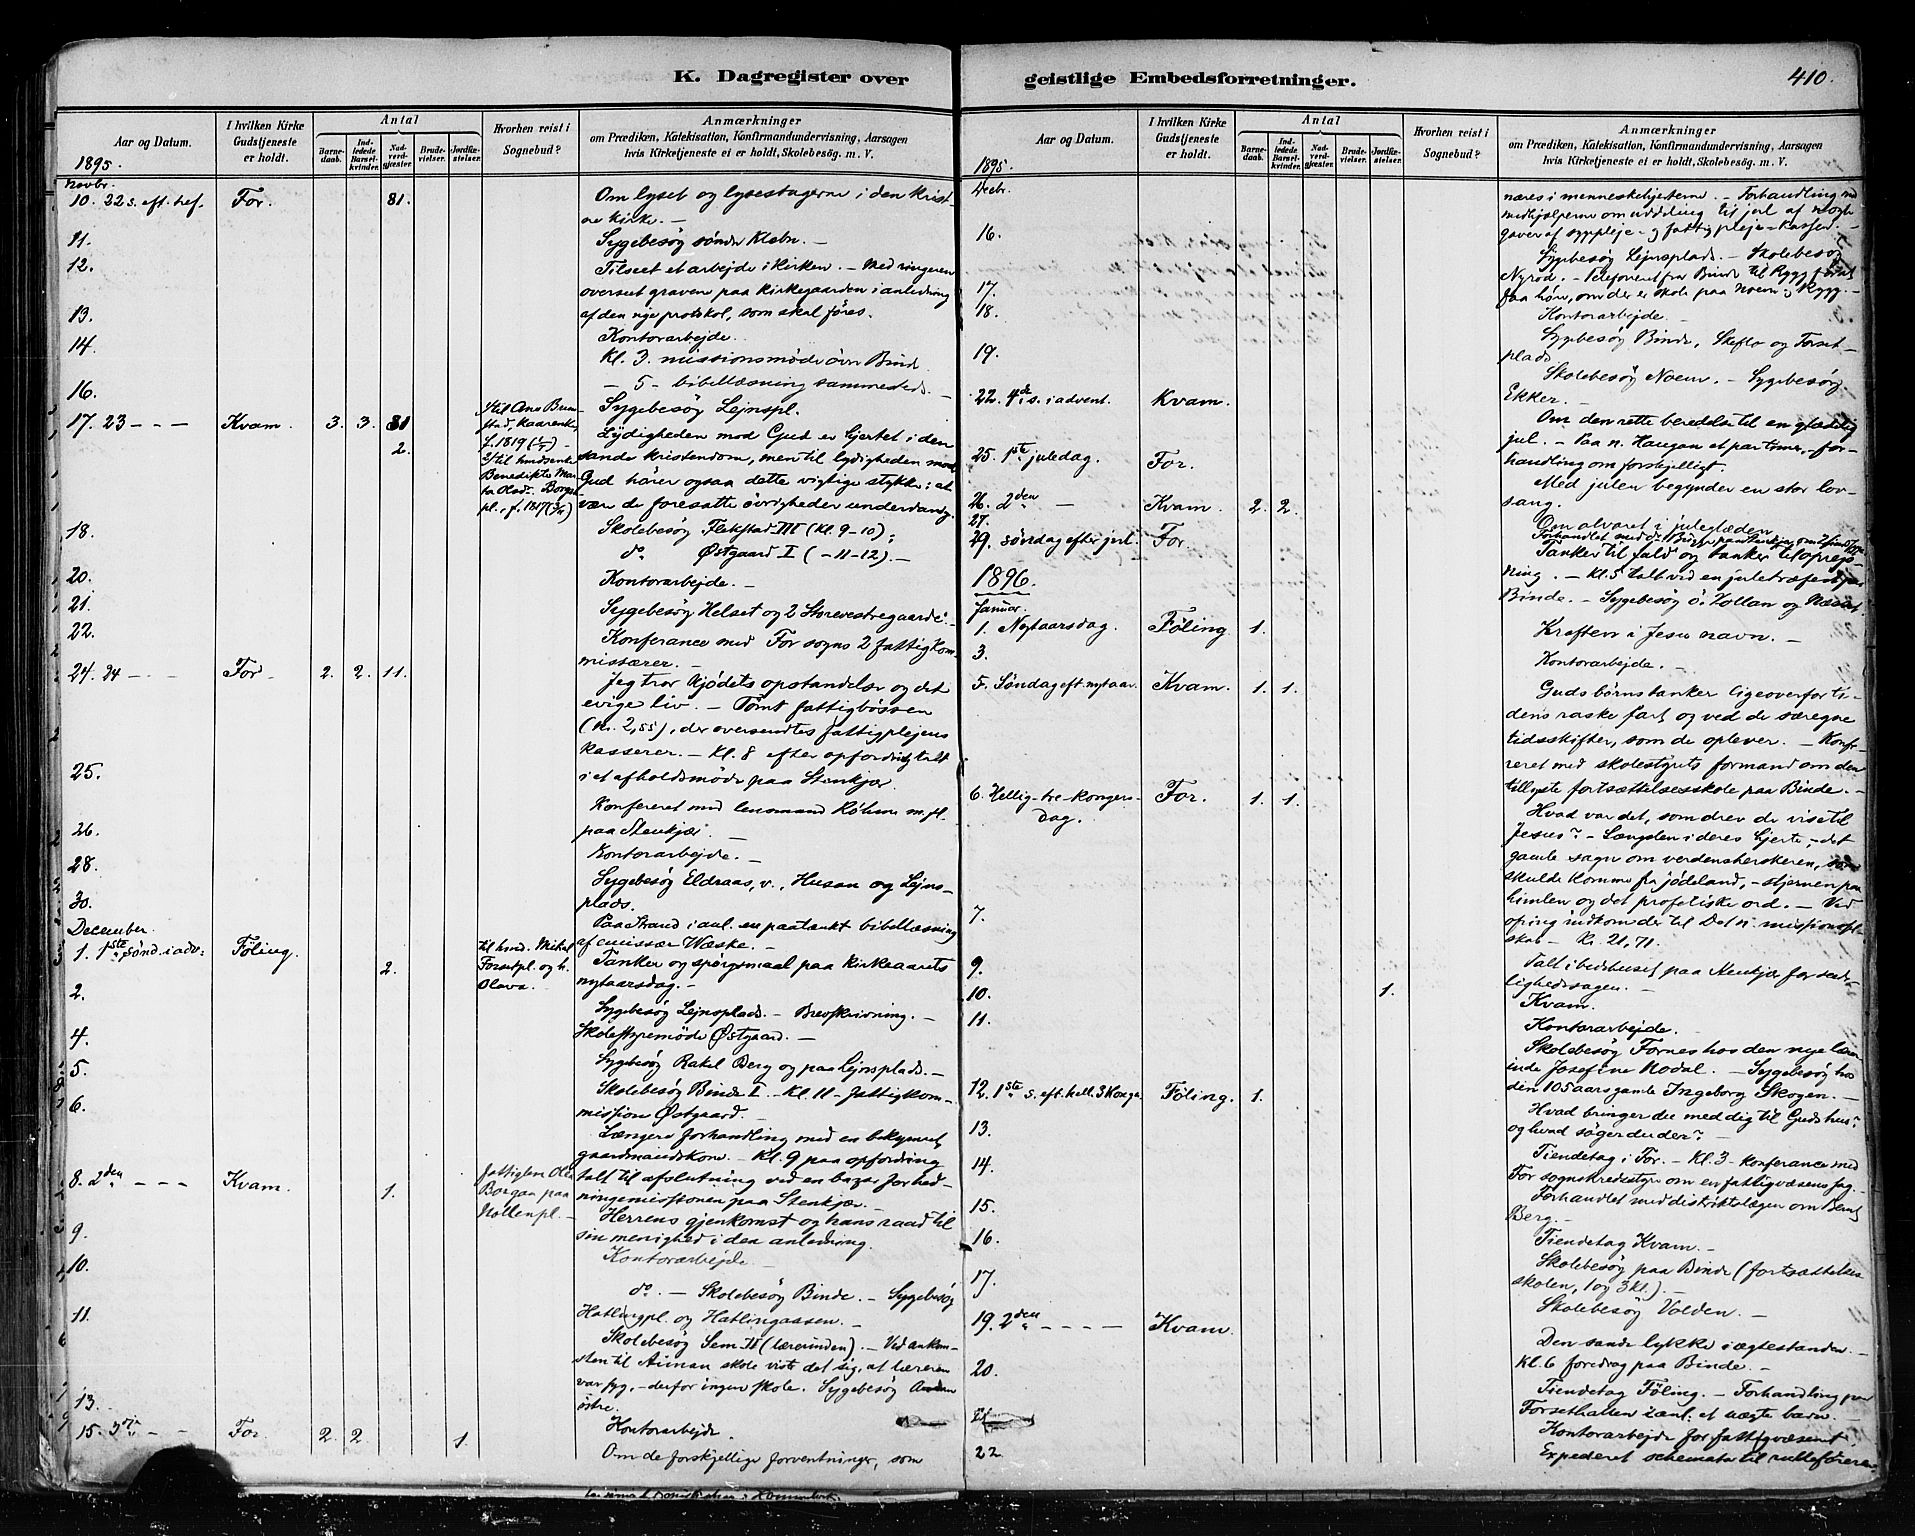 K. Dagregister over
geistlige Embedsforretninger.
410.
Aar og Datum.
I hvilken Kirke Gudstjeneste er holdt.
Antal
Barnedaab.
Indledede Barselkvinder.
Nadverdgjæster.
Brudevielser.
Jordfæstelser.
Hvorhen reist i Sognebud?
Anmærkninger
om Prædiken, Katekisation, Konfirmandundervisning, Aarsagen
hvis Kirketjeneste ei er holdt, Skolebesøg. m. V.
1895.
Novbr.
10. 22 s. eft. tref. For. 81. Om lyset og lysestagerne i den krist-
ne kirke. —
11. Sygebesøg søndre Klebn. —
12. Tilseet et arbejde i kirken. — Med ringeren
overset graven paa kirkegaarden i anledning
13. af den nye protokol, som skal føres.
Kontorarbejde.
14. Kl. 3. missionsmøde övre Bind.
— 5 — bibellæsning sammesteds.
16. Sygebesøg Lejnspl.
17. 23 — — — Kvam. 3. 3. 81
2.
f. 1819
Lydigheden mod Gud er hjertet i den
sande kristendom, men til lydigheden mod
Gud hører ogsaa dette vigtige stykke: at
være de foresatte övrigheder underdanig.
18. Skolebesøg Flekstad III (Kl. 9-10);
do Østgaard I (— 11-12). —
20. Kontorarbejde. —
21. Sygebesøg Helset og 2 Storevestregaarde. —
22. Konferance med For sogns 2 fattigkom-
missærer. —
24. 24 — — For. 2. 2. 11. Jeg tror kjødets opstandelse og det
evige liv. — Tømt fattigbøssen
(Kr. 2,55), der oversendtes fattigplejens
kasserer. — Kl. 8 efter opfordring talt
i et afholdsmøde paa Stenkjær.
25. Konfereret med lensmand Røhme m. fl.
paa Stenkjær. —
26. Kontorarbejde. —
28. Sygebesøg Eldraas, v., Husan og Lejns-
plads.
30. Paa Strand i anl. en paatænkt bibellæsning
af emissær Wæske. —
December.
1. 1ste sønd. i adv. Føling. 2. til hmd. Mikal
Forsetpl. og h.
Olava.
Tanker og spørgsmaal paa kirkeaarets
nytaarsdag. —
2. Sygebesøg Lejnsplads. — Brevskrivning. —
4. Skolestyremøde Østgaard. —
5. Sygebesøg Rakel Berg og paa Lejnsplads. —
6. Skolebesøg Binde I. — Kl. 11 — fattigkom-
mission Østgaard. —
Længere forhandling med en bekymret
gaardmandskone. — Kl. 9 paa opfordring
talt til afslutning ved en bazar for hed-
ningemissionen paa Stenkjær. —
8. 2den — — — Kvam. 1.
Herrens gjenkomst og hans raad til
sin menighed i den anledning.
9. Kontorarbejde —
10. do. — Skolebesøg Binde. — Sygebesøg
Hatlingpl. og Hatlingaasen. —
11. Skolebesøg Sem II (lærerinden). — Ved ankom-
sten til Aunan skole viste det sig, at læreren
var syg, — derfor ingen skole. Sygebesøg
østre.
13. Kontorarbejde.
15. 3die — — For. 2. 2. 1. Om de forskjellige forventninger, som
1895.
Decbr.
næres i menneskehjerterne. — Forhandling med
medhjælperne om uddeling til jul af nogle
gaver af sygepleje- og fattigpleje-kassen. —
16. Sygebesøg Lejnsplads. — Skolebesøg
17. Nyrød. — Telefonert fra Binde til Rygg forat
faa høre, om der er skole paa Noem og Rygg. —
18. Kontorarbejde. —
19. Sygebesøg Binde, Skeflo og Forset-
plads.
Skolebesøg Noem. — Sygebesøg
Ekker. —
22. 4de s. i advent. Kvam. Om den rette beredelse til en glædelig
jul. — Paa n. Haugan et par timer, — for-
handling om forskjelligt.
25. 1ste juledag. For. Med julen begynder en stor lov-
sang.
26. 2den — Kvam. 2. 2. Om alvoret i juleglæden.
27.
29. søndag efter jul. For. Tanker til fald og tanker til oprejs-
ning. — Kl. 5 talt ved en juletræfest paa
Binde. —
1896.
Januar.
1. Nytaarsdag. Føling 1. Kraften i Jesu navn. —
3. Kontorarbejde. —
5. Søndag eft. nytaar. Kvam. 1. 1. Guds børns tanker ligeoverfor ti-
dens raske fart og ved de særegne
tidsskifter, som de oplever. — Konfe-
reret med skolestyrets formand om den
tillyste fortsættelsesskole paa Binde. —
6. Hellig-tre-kongers-
dag. For. 1. 1. Hvad var det, som drev de vise til
Jesus? — Længslen i deres hjerte, — det
gamle sagn om verdensherskeren, som
skulde komme fra jødeland, — stjernen paa
himlen og det profetiske ord. — Ved
ofring indkom der til Det n. missionssel-
skab — Kr. 21,71.
7. Talt i bedehuset paa Stenkjær for sæd-
lighedssagen. —
9.
10. 1. Kvam.
11. Kontorarbejde.
Skolebesøg Fornes hos den nye lærer-
inde Josefine Rodal. — Sygebesøg hos
den 105 aars gamle Ingeborg Skogen. —
12. 1ste s. eft. hell. 3 Konge. Føling. 1. Hvad bringer du med dig til Guds hus?
og hvad søger du der? —
13. Tiendetag i For. — Kl. 3 — konferance med
For sogns kredsstyre om en fattigvæsens sag. —
14. Forhandlet med distriktslægen om Bernt
Berg. —
15. Tiendetag Kvam. —
16. Skolebesøg paa Binde (fortsættelses-
skolen, 1 og 3 kl.). —
17. Skolebesøg Volden. —
19. 2den — — — — Kvam. Den sande lykke i ægtestanden. —
Kl. 6 foredrag paa Binde. —
20. Tiendetag Føling. — Forhandling paa
Forsethallen i anl. et uægte barn. —
Kontorarbejde for fattigvæsenet.
22. Expederet schemata til